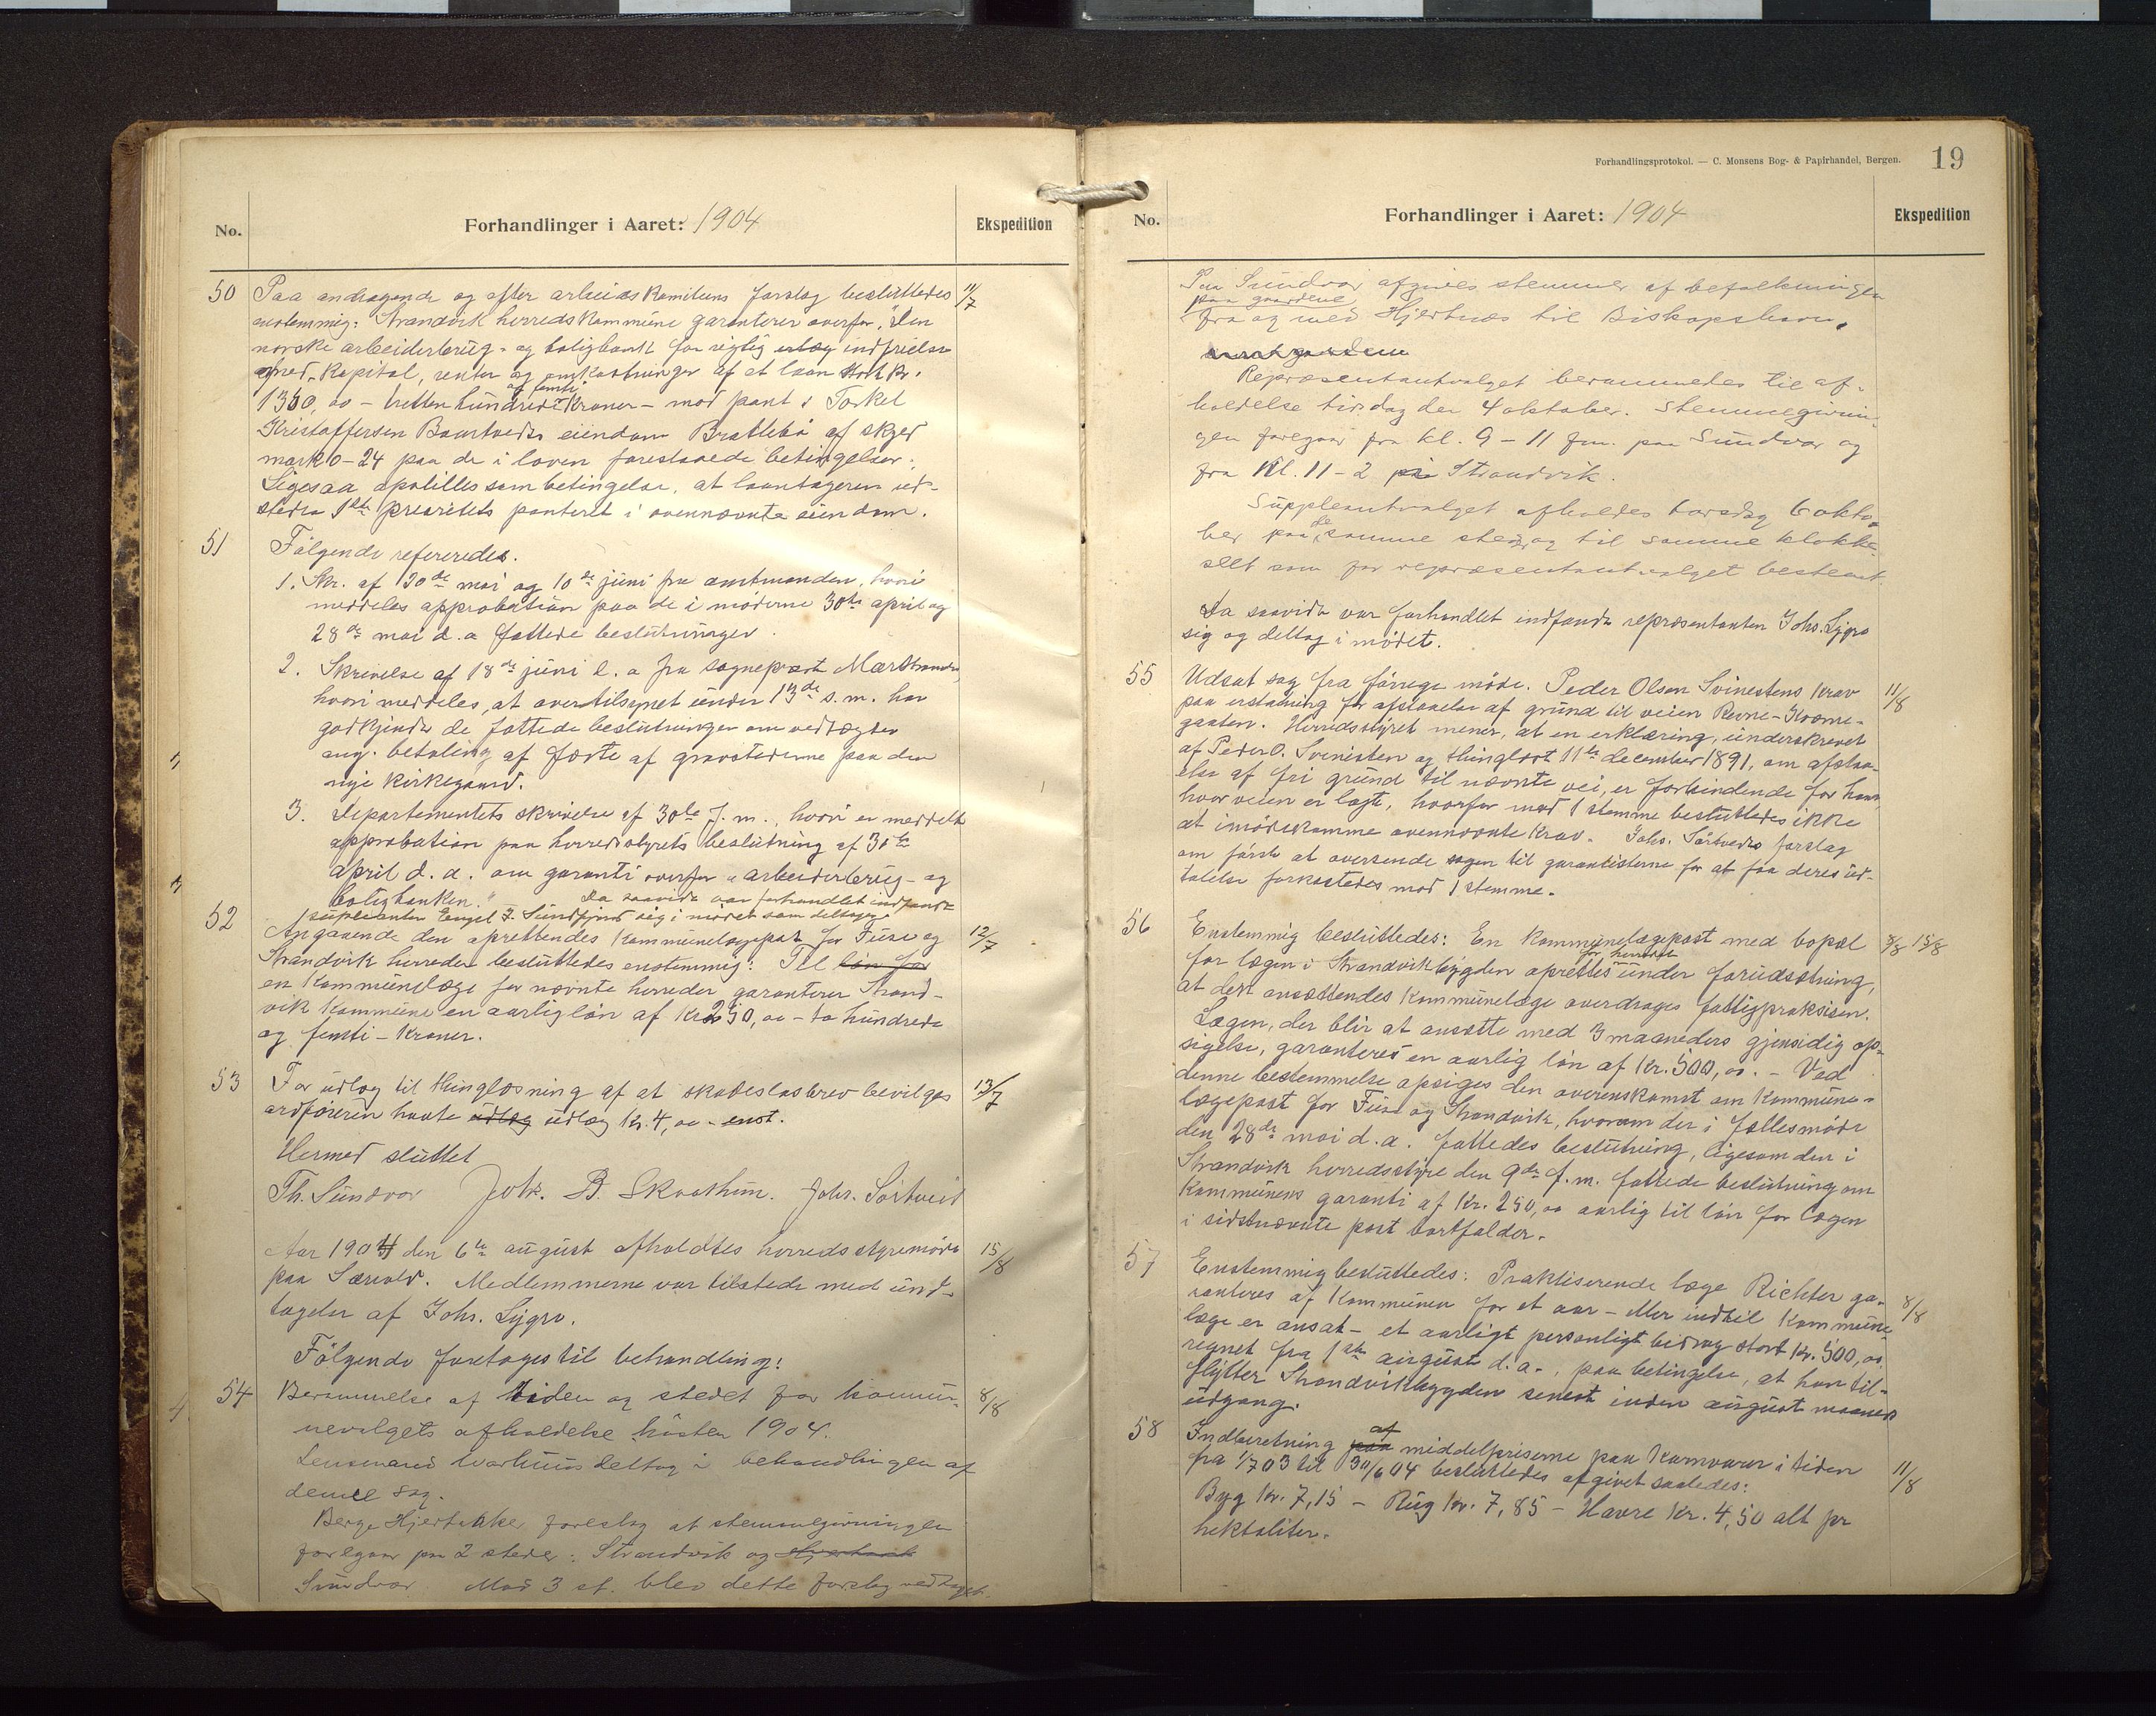 No.
Forhandlinger i Aaret: 1904
Ekspedition
50 Paa andragende og efter arbeidskomiteens forslag besluttedes 11/7
enstemmig: Strandvik herredskommune garanterer overfor "Den
norske arbeiderbrug- og boligbank for rigtig indfrielse
med kapital, renter og omkostninger af et laan stort kr.
1350,00 – tretten hundrede og femti Kroner – mod pant i Torkel
Kristoffersen Baartveds eiendom Brattebø af skyld
mark 0-24 paa de i loven foreskrevne betingelser.
Ligesaa opstilles som betingelse, at laantageren ud-
steder 1ste prioritets panteret i ovennævnte eiendom.
51 Følgende refereredes.
1. Skr. af 20de mai og 10de juni fra amtmanden, hvori
meddeles approbation paa de i møderne 30te april og
28de mai d.a fattede beslutninger.
2. Skrivelse af 18de juni d. a fra sogneprest Marstrander,
hvori meddeles, at overtilsynet under 13de s.m. har
godkjendt de fattede beslutninger om vedtægter
ang. betaling af fæste af gravstederne paa den
nye kirkegaard.
3. Departementets skrivelse af 30te f. m., hvori er meddelt
approbation paa herredsstyrets beslutning af 30te
april d. a. om garanti overfor "arbeiderbrug- og
boligbanken." Da saavidt var forhandlet indfandt
supleanten Engel J. Sundfjord sig i mødet som deltager
52 Angaaende den oprettendes kommunelægepost for Fuse og 12/7
Strandvik herreder besluttedes enstemmig: Til løn for
en kommunelæge for nævnte herreder garanterer Strand-
vik kommune en aarlig løn af Kr 250,00 – to hundrede
og femti – Kroner.
53 For udlæg til thinglæsning af et skadesløsbrev bevilges 13/7
ordføreren havte udlæg udlæg Kr. 4,00 – enst.
Hermed sluttet
Th. Sundvor Joh. B. Skaathun. Johs. Sørtveit
Aar 1904 den 6te august afholdtes herredsstyremøde 15/8
paa Særvold. Medlemmerne var tilstede med und-
tagelse af Johs. Lygre.
Følgende foretoges til behandling:
54 Berammelse af tiden og stedet for kommu- 8/8
nevalgets afholdelse høsten 1904.
Lensmand Warhuus deltog i behandlingen af
denne sag.
Berge Hjertaker foreslog at stemmegivningen
foregaar paa 2 steder: Strandvik og
Sundvor. Mod 3 st. blev dette forslag vedtaget.
Forhandlingsprotokol. — C. Monsens Bog- & Papirhandel, Bergen. 19
No.
Forhandlinger i Aaret: 1904
Ekspedition
Paa Sundvor afgives stemmer af befolkningen
paa gaardene
fra og med Hjertnæs til Biskopshavn.
Repræsentantvalget berammedes til af-
holdelse tirsdag den 4 oktober. Stemmegivnin-
gen foregaar fra kl. 9 – 11 fm. paa Sundvor og
fra Kl. 11 – 2 paa Strandvik.
Suppleantvalget afholdes torsdag 6 okto-
ber paa de samme steder og til samme klokke-
slet som for repræsentantvalget bestemt.
Da saavidt var forhandlet indfandt repræsentanten Johs. Lygre
sig og deltog i mødet.
55 Udsat sag fra forrige møde. Peder Olsen Svinestens krav 11/8
paa erstatning for afstaaelse af grund til veien Revne-Kvarne-
gaaten. Herredsstyret mener, at en erklæring, underskrevet
af Peder O. Svinesten og thinglæst 11te december 1891, om afstaa-
else af fri grund til nævnte vei, er forbindende for ham
hvor veien er lagt, hvorfor mod 1 stemme besluttedes ikke
at imødekomme ovennævnte krav. Johs. Sørtveits forslag
om først at oversende sagen til garantisterne for at faa deres ud-
talelse forkastedes mod 1 stemme.
56 Enstemmig besluttedes: En kommunelægepost med bopæl 8/8 15/8
for lægen i Strandvikbygden oprettes for herredet under forudsætning,
at den ansættendes kommunelæge overdrages fattigpraksisen.
Lægen, der blir at ansætte med 3 maaneders gjensidig op-
sigelse, garanteres en aarlig løn af Kr. 500,00. – Ved
denne bestemmelse opsiges den overenskomst om kommune-
lægepost for Fuse og Strandvik, hvorom der i fællesmøde
den 28de mai d. a. fattedes beslutning, ligesom den i
Strandvik herredsstyre den 9de f.m. fattede beslutning om
kommunens garanti af Kr. 250,00 aarlig til løn for lægen
i sidstnævnte post bortfalder.
57 Enstemmig besluttedes: Praktiserende læge Richter ga-
ranteres af kommunen for et aar – eller indtil kommune- 8/8
læge er ansat – et aarligt personligt bidrag stort Kr. 500,00
regnet fra 1ste august d.a., paa betingelse, at han til-
flytter Strandvikbygden senest inden august maaneds
udgang.
58 Indberetning paa af middelpriserne paa kornvarer i tiden
fra 1/7 03 til 30/6 04 besluttedes afgivet saaledes: 11/8
Byg kr. 7,15 – Rug kr. 7,85 – Havre kr. 4,50 alt pr
hektoliter.